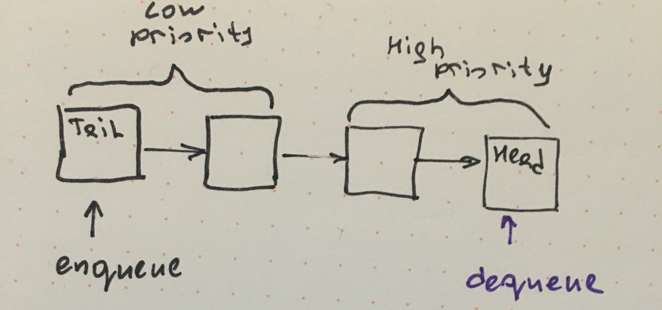 Low
priority
High
priority
Tail
Head
enqueue
dequeue